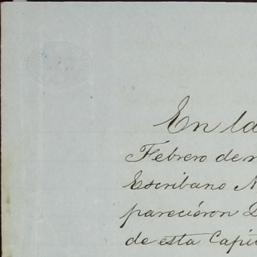 En la
Febrero de
Escribano
parecieron
de esta Capi